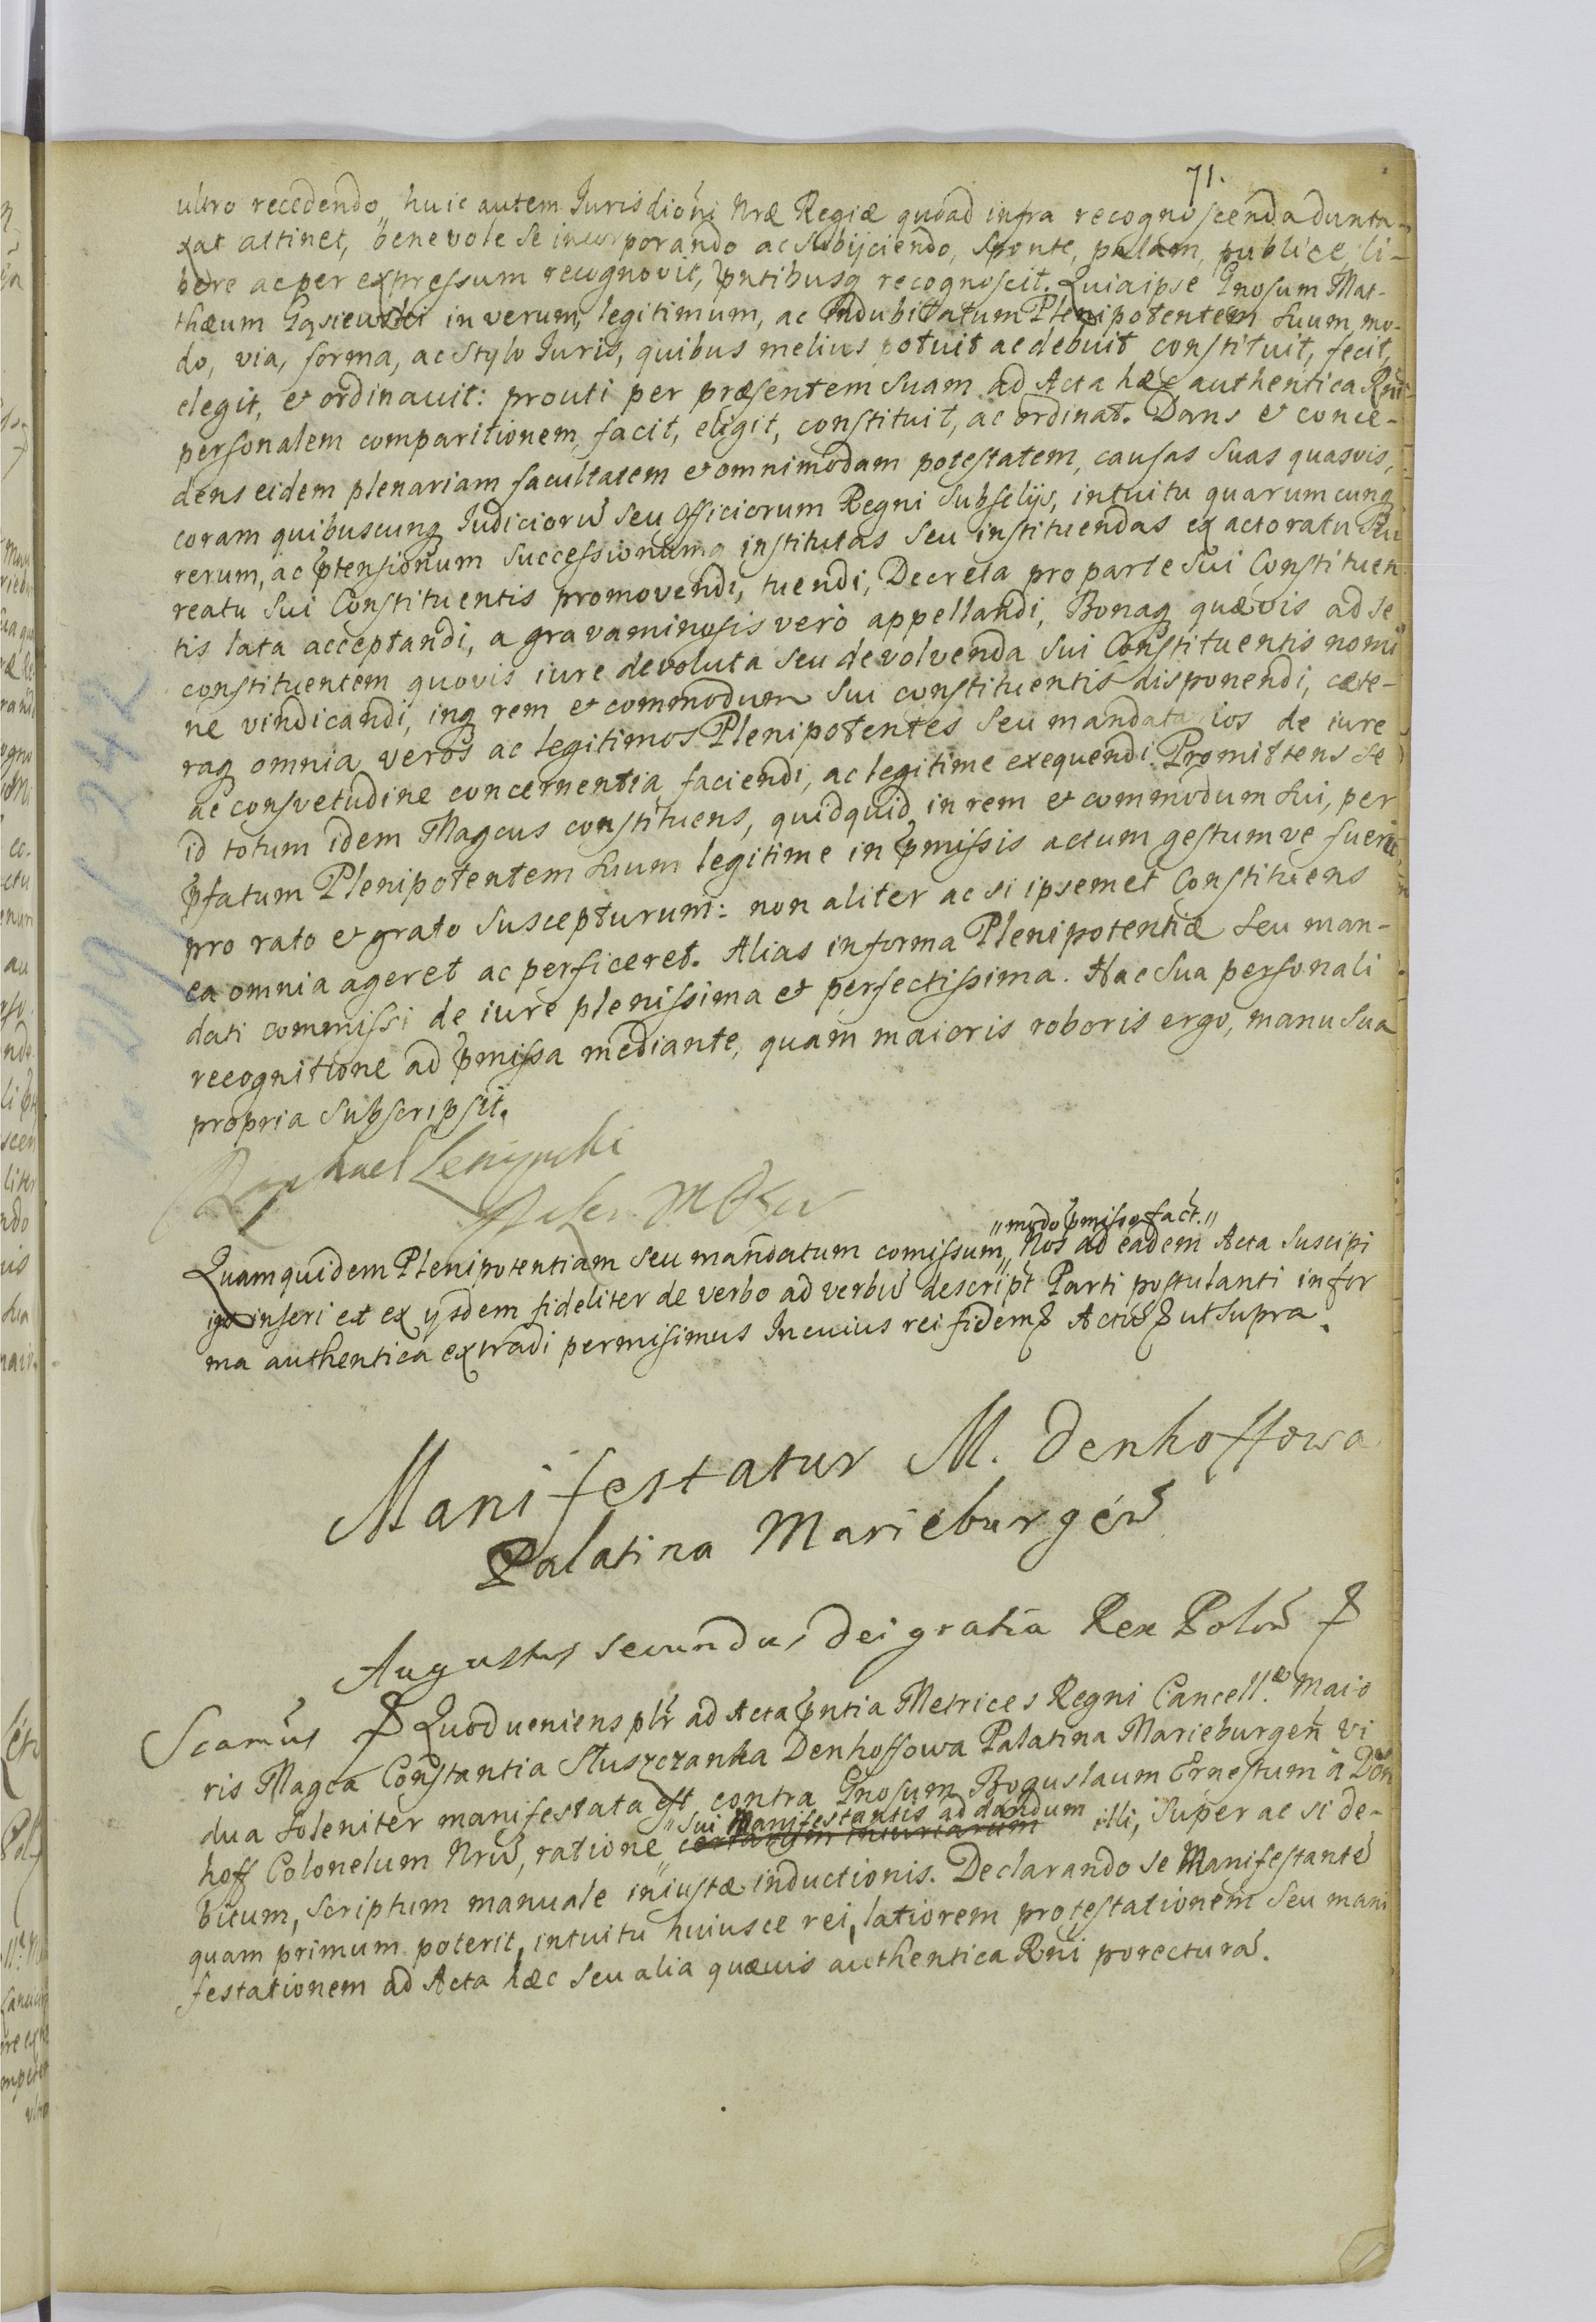 71.
ultro recedendo, huic autem Jurisdioni Nræ Regiæ quoad infra recognoscenda dunta-
xat attinet, benevole se incorporando ac subijciendo, sponte, palam, publice, li-
bere ac per expressum recognovit, pntibusq recognoscit. Quia ipse Gnosum Mat-
thæum Gąsiewski in verum, legitimum, ac indubitatum Plenipotentem suum, mo-
do, via, forma, ac stylo Juris, quibus melius potuit ac debuit constituit, fecit,
elegit, et ordinavit: prouti per præsentem suam ad Acta hæc authentica Rni
personalem comparitionem, facit, eligit, constituit, ac ordinat. Dans et conce-
dens eidem plenariam facultatem et omnimodam potestatem, causas suas quasvis,
coram quibuscunq Judiciorū seu Officiorum Regni Subselijs, intuitu quarumcunq
rerum, ac ptensionum successionumq institutas seu instituendas ex actoratu seu
reatu sui Constituentis promovendi, tuendi, Decreta pro parte sui Constituen
tis lata acceptandi, a gravaminosis verò appellandi, Bonaq quævis ad se
constituentem quovis iure devoluta seu devolvenda sui Constituentis nomi
ne vindicandi, inq rem et commodum sui constituentis disponendi, cæte-
raq omnia veros ac legitimos Plenipotentes seu mandatarios de iure
ac consvetudine concernentia faciendi, ac legitime exequendi. Promittens se
id totum idem Magcus constituens, quidquid in rem et commodum sui, per
pfatum Plenipotentem suum legitime in pmissis actum gestum ve fuerit,
pro rato et grato suscepturum: non aliter ac si ipsemet Constituens
ea omnia ageret ac perficeret. Alias in forma Plenipotentiæ seu man-
dati commissi de iure plenissima et perfectissima. Hac sua personali
recognitione ad pmissa mediante, quam maioris roboris ergo, manu sua
propria subscripsit.
Raphael
"modo pmisso fact."
Quamquidem Plenipotentiam seu mandatum comissum, Nos ad eadem Acta suscipi
inseri et ex ysdem fideliter de verbo ad verbū descript Parti postulanti in for
ma authentica extradi permisimus In cuius rei fidem Actū ut supra.
Manifestatur M. Denhoffowa
Palatina Marieburgen
Augustus secundus Dei gratia Rex Polon
Quod ueniens plr ad Acta pntia Metrices Regni Cancell.æ Maio
ris Magca Constantia Słuszczanka Denhoffowa Palatina Marieburgen Vi
dua soleniter manifestata est contra Gnosum Boguslaum Ernestum à Dön
"sui Manifestantis ad dandum
hoff Colonelum Nrū, ratione certarum iniuriarum illi, super ac si de-
bitum, scriptum manuale iniustæ inductionis. Declarando se Manifestante
quam primum poterit, intuitu huiusce rei, latiorem protestationem seu mani
festationem ad Acta hæc seu alia quævis authentica Rni porecturā.